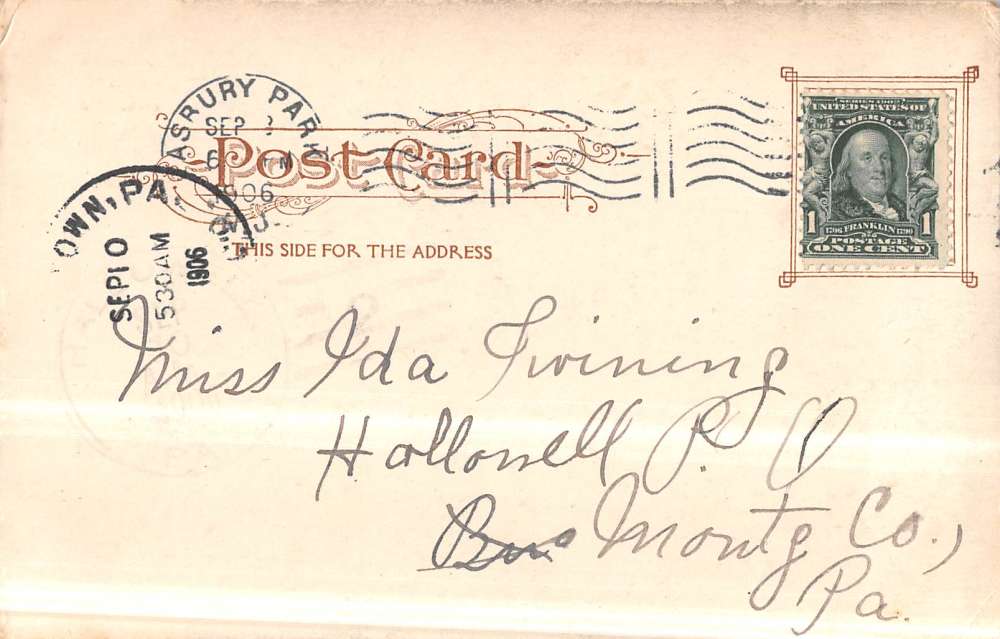 ASBURY PARK
SEP
6
1906
N.J.
Post Card
THIS SIDE FOR THE ADDRESS
OWN, PA.
SEP 10
530AM
1906
SERIES 1902
UNITED STATES OF
AMERICA
1 1
1706 FRANKLIN 1790
POSTAGE
ONE CENT
Miss Ida Twining
Hallowell P. O
Montg Co.,
Pa.